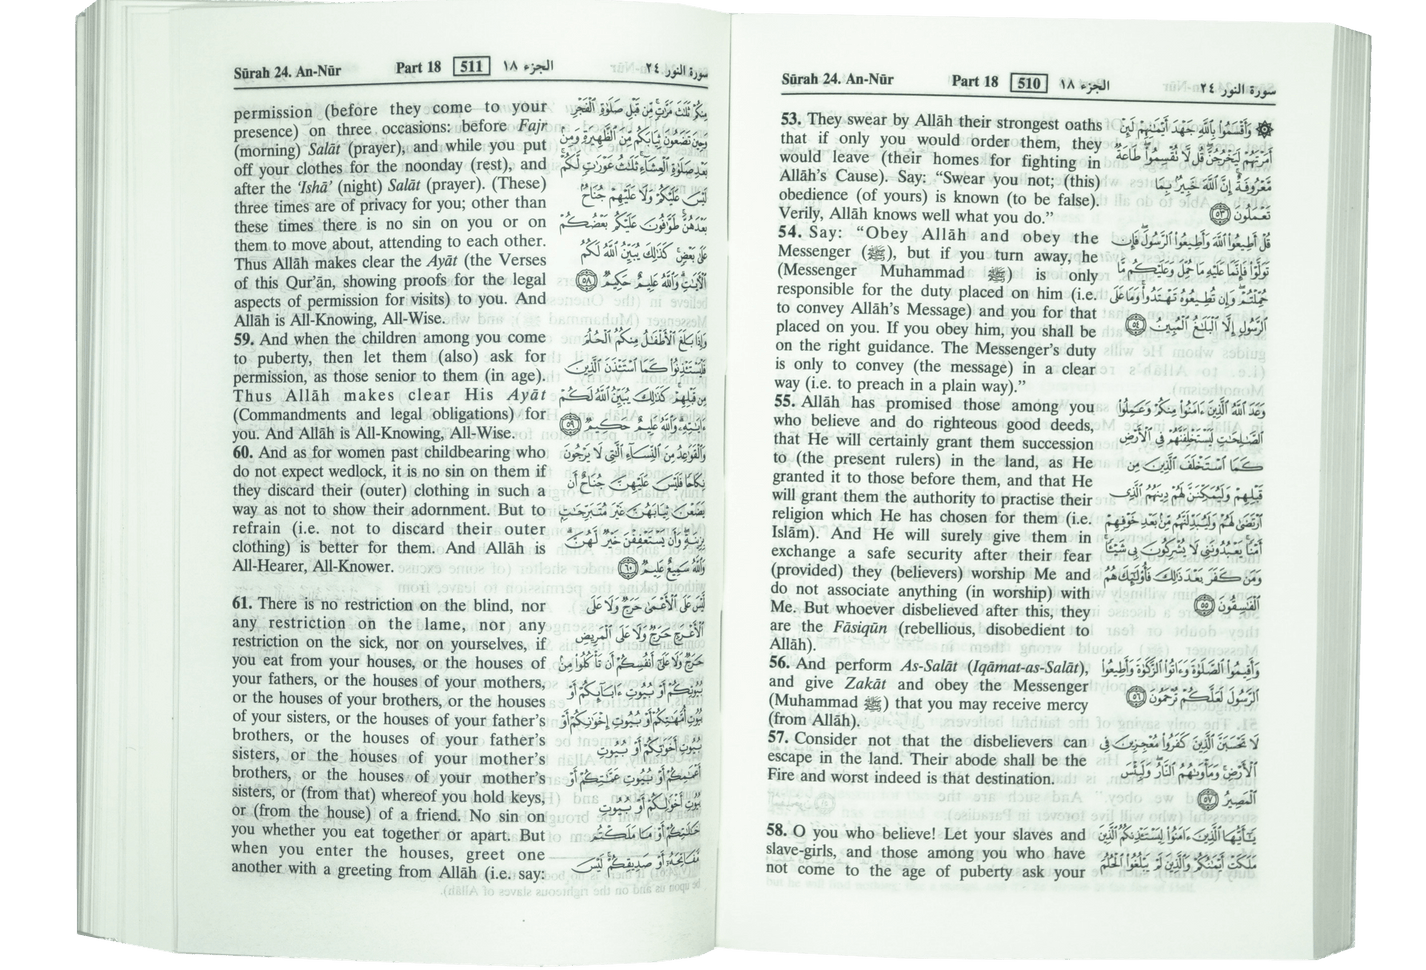 Sūrah 24. An-Nūr Part 18 510 الجزء ١٨ سورة النور ٢٤
53. They swear by Allāh their strongest oaths
that if only you would order them, they
would leave (their homes for fighting in
Allāh's Cause). Say: “Swear you not; (this)
obedience (of yours) is known (to be false).
Verily, Allāh knows well what you do.”
54. Say: “Obey Allāh and obey the
Messenger (ﷺ), but if you turn away, he
(Messenger Muhammad ﷺ) is only
responsible for the duty placed on him (i.e.
to convey Allāh's Message) and you for that
placed on you. If you obey him, you shall be
on the right guidance. The Messenger's duty
is only to convey (the message) in a clear
way (i.e. to preach in a plain way).”
55. Allāh has promised those among you
who believe and do righteous good deeds,
that He will certainly grant them succession
to (the present rulers) in the land, as He
granted it to those before them, and that He
will grant them the authority to practise their
religion which He has chosen for them (i.e.
Islām). And He will surely give them in
exchange a safe security after their fear
(provided) they (believers) worship Me and
do not associate anything (in worship) with
Me. But whoever disbelieved after this, they
are the Fāsiqūn (rebellious, disobedient to
Allāh).
56. And perform As-Salāt (Iqāmat-as-Salāt),
and give Zakāt and obey the Messenger
(Muhammad ﷺ) that you may receive mercy
(from Allāh).
57. Consider not that the disbelievers can
escape in the land. Their abode shall be the
Fire and worst indeed is that destination.
58. O you who believe! Let your slaves and
slave-girls, and those among you who have
not come to the age of puberty ask your
۞ وَأَقْسَمُوا۟ بِٱللَّهِ جَهْدَ أَيْمَٰنِهِمْ لَئِنْ
أَمَرْتَهُمْ لَيَخْرُجُنَّ قُل لَّا تُقْسِمُوا۟ طَاعَةٌ
مَّعْرُوفَةٌ إِنَّ ٱللَّهَ خَبِيرٌۢ بِمَا
تَعْمَلُونَ ٥٣
قُلْ أَطِيعُوا۟ ٱللَّهَ وَأَطِيعُوا۟ ٱلرَّسُولَ فَإِن
تَوَلَّوْا۟ فَإِنَّمَا عَلَيْهِ مَا حُمِّلَ وَعَلَيْكُم مَّا
حُمِّلْتُمْ وَإِن تُطِيعُوهُ تَهْتَدُوا۟ وَمَا عَلَى
ٱلرَّسُولِ إِلَّا ٱلْبَلَٰغُ ٱلْمُبِينُ ٥٤
وَعَدَ ٱللَّهُ ٱلَّذِينَ ءَامَنُوا۟ مِنكُمْ وَعَمِلُوا۟
ٱلصَّٰلِحَٰتِ لَيَسْتَخْلِفَنَّهُمْ فِى ٱلْأَرْضِ
كَمَا ٱسْتَخْلَفَ ٱلَّذِينَ مِن
قَبْلِهِمْ وَلَيُمَكِّنَنَّ لَهُمْ دِينَهُمُ ٱلَّذِى
ٱرْتَضَىٰ لَهُمْ وَلَيُبَدِّلَنَّهُم مِّنۢ بَعْدِ خَوْفِهِمْ
أَمْنًا يَعْبُدُونَنِى لَا يُشْرِكُونَ بِى شَيْـًٔا
وَمَن كَفَرَ بَعْدَ ذَٰلِكَ فَأُو۟لَٰٓئِكَ هُمُ
ٱلْفَٰسِقُونَ ٥٥
وَأَقِيمُوا۟ ٱلصَّلَوٰةَ وَءَاتُوا۟ ٱلزَّكَوٰةَ وَأَطِيعُوا۟
ٱلرَّسُولَ لَعَلَّكُمْ تُرْحَمُونَ ٥٦
لَا تَحْسَبَنَّ ٱلَّذِينَ كَفَرُوا۟ مُعْجِزِينَ فِى
ٱلْأَرْضِ وَمَأْوَىٰهُمُ ٱلنَّارُ وَلَبِئْسَ
ٱلْمَصِيرُ ٥٧
يَٰٓأَيُّهَا ٱلَّذِينَ ءَامَنُوا۟ لِيَسْتَـْٔذِنكُمُ ٱلَّذِينَ
مَلَكَتْ أَيْمَٰنُكُمْ وَٱلَّذِينَ لَمْ يَبْلُغُوا۟ ٱلْحُلُمَ
Sūrah 24. An-Nūr Part 18 511 الجزء ١٨ سورة النور ٢٤
permission (before they come to your
presence) on three occasions: before Fajr
(morning) Salāt (prayer), and while you put
off your clothes for the noonday (rest), and
after the ‘Ishā’ (night) Salāt (prayer). (These)
three times are of privacy for you; other than
these times there is no sin on you or on
them to move about, attending to each other.
Thus Allāh makes clear the Ayāt (the Verses
of this Qur'ān, showing proofs for the legal
aspects of permission for visits) to you. And
Allāh is All-Knowing, All-Wise.
59. And when the children among you come
to puberty, then let them (also) ask for
permission, as those senior to them (in age).
Thus Allāh makes clear His Ayāt
(Commandments and legal obligations) for
you. And Allāh is All-Knowing, All-Wise.
60. And as for women past childbearing who
do not expect wedlock, it is no sin on them if
they discard their (outer) clothing in such a
way as not to show their adornment. But to
refrain (i.e. not to discard their outer
clothing) is better for them. And Allāh is
All-Hearer, All-Knower.
61. There is no restriction on the blind, nor
any restriction on the lame, nor any
restriction on the sick, nor on yourselves, if
you eat from your houses, or the houses of
your fathers, or the houses of your mothers,
or the houses of your brothers, or the houses
of your sisters, or the houses of your father's
brothers, or the houses of your father's
sisters, or the houses of your mother's
brothers, or the houses of your mother's
sisters, or (from that) whereof you hold keys,
or (from the house) of a friend. No sin on
you whether you eat together or apart. But
when you enter the houses, greet one
another with a greeting from Allāh (i.e. say:
مِنكُمْ ثَلَٰثَ مَرَّٰتٍ مِّن قَبْلِ صَلَوٰةِ ٱلْفَجْرِ
وَحِينَ تَضَعُونَ ثِيَابَكُم مِّنَ ٱلظَّهِيرَةِ وَمِنۢ
بَعْدِ صَلَوٰةِ ٱلْعِشَآءِ ثَلَٰثُ عَوْرَٰتٍ لَّكُمْ
لَيْسَ عَلَيْكُمْ وَلَا عَلَيْهِمْ جُنَاحٌۢ
بَعْدَهُنَّ طَوَّٰفُونَ عَلَيْكُم بَعْضُكُمْ
عَلَىٰ بَعْضٍ كَذَٰلِكَ يُبَيِّنُ ٱللَّهُ لَكُمُ
ٱلْءَايَٰتِ وَٱللَّهُ عَلِيمٌ حَكِيمٌ ٥٨
وَإِذَا بَلَغَ ٱلْأَطْفَٰلُ مِنكُمُ ٱلْحُلُمَ
فَلْيَسْتَـْٔذِنُوا۟ كَمَا ٱسْتَـْٔذَنَ ٱلَّذِينَ
مِن قَبْلِهِمْ كَذَٰلِكَ يُبَيِّنُ ٱللَّهُ لَكُمْ
ءَايَٰتِهِۦ وَٱللَّهُ عَلِيمٌ حَكِيمٌ ٥٩
وَٱلْقَوَٰعِدُ مِنَ ٱلنِّسَآءِ ٱلَّٰتِى لَا يَرْجُونَ
نِكَاحًا فَلَيْسَ عَلَيْهِنَّ جُنَاحٌ أَن
يَضَعْنَ ثِيَابَهُنَّ غَيْرَ مُتَبَرِّجَٰتٍۭ
بِزِينَةٍ وَأَن يَسْتَعْفِفْنَ خَيْرٌ لَّهُنَّ
وَٱللَّهُ سَمِيعٌ عَلِيمٌ ٦٠
لَّيْسَ عَلَى ٱلْأَعْمَىٰ حَرَجٌ وَلَا عَلَى
ٱلْأَعْرَجِ حَرَجٌ وَلَا عَلَى ٱلْمَرِيضِ
حَرَجٌ وَلَا عَلَىٰٓ أَنفُسِكُمْ أَن تَأْكُلُوا۟ مِنۢ
بُيُوتِكُمْ أَوْ بُيُوتِ ءَابَآئِكُمْ أَوْ
بُيُوتِ أُمَّهَٰتِكُمْ أَوْ بُيُوتِ إِخْوَٰنِكُمْ أَوْ
بُيُوتِ أَخَوَٰتِكُمْ أَوْ بُيُوتِ
أَعْمَٰمِكُمْ أَوْ بُيُوتِ عَمَّٰتِكُمْ أَوْ
بُيُوتِ أَخْوَٰلِكُمْ أَوْ بُيُوتِ
خَٰلَٰتِكُمْ أَوْ مَا مَلَكْتُم
مَّفَاتِحَهُۥٓ أَوْ صَدِيقِكُمْ لَيْسَ